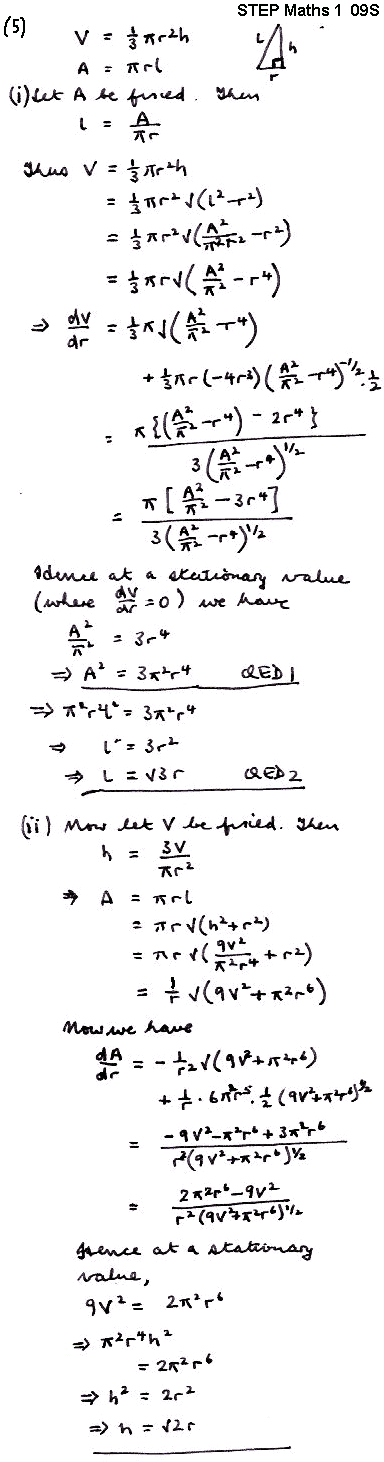 STEP Maths 1 09S
(5) V = ⅓πr²h
A = πrl
l h r
(i) Let A be fixed. Then
l = A/πr
Thus V = ⅓πr²h
= ⅓πr²√(l²-r²)
= ⅓πr²√(A²/π²r² - r²)
= ⅓πr√(A²/π² - r⁴)
⇒ dV/dr = ⅓π√(A²/π² - r⁴)
+ ⅓πr(-4r³)(A²/π² - r⁴)^-1/2 · ½
= π{(A²/π² - r⁴) - 2r⁴} / 3(A²/π² - r⁴)^1/2
= π[A²/π² - 3r⁴] / 3(A²/π² - r⁴)^1/2
Hence at a stationary value
(where dV/dr = 0) we have
A²/π² = 3r⁴
⇒ A² = 3π²r⁴ QED 1
⇒ π²r²l² = 3π²r⁴
⇒ l² = 3r²
⇒ L = √3 r QED 2
(ii) Now let V be fixed. Then
h = 3V/πr²
⇒ A = πrl
= πr√(h²+r²)
= πr√(9V²/π²r⁴ + r²)
= 1/r √(9V² + π²r⁶)
Now we have
dA/dr = -1/r² √(9V² + π²r⁶)
+ 1/r · 6π²r⁵ · ½ (9V² + π²r⁶)^-1/2
= -9V² - π²r⁶ + 3π²r⁶ / r²(9V² + π²r⁶)^1/2
= 2π²r⁶ - 9V² / r²(9V² + π²r⁶)^1/2
Hence at a stationary
value,
9V² = 2π²r⁶
⇒ π²r⁴h²
= 2π²r⁶
⇒ h² = 2r²
⇒ h = √2 r